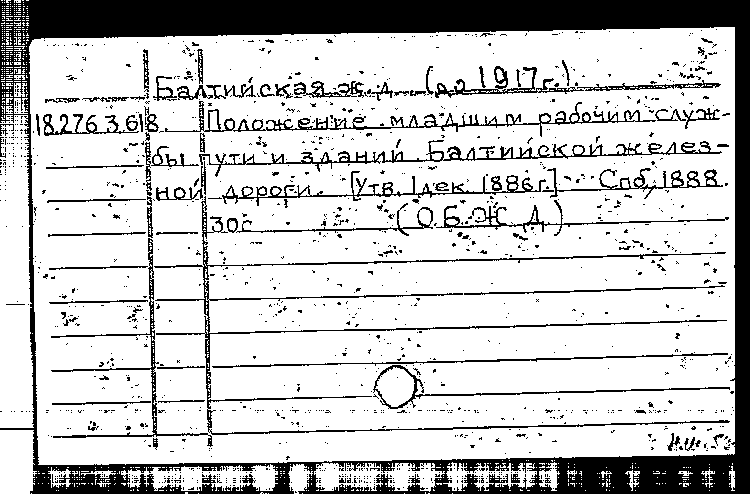 Балтийская ж.д. (до 1917г.)
18.276.3.618. Положение младшим рабочим служ-
бы пути и зданий Балтийской желез-
ной дороги. [Утв. 1 дек. 1886г.] Спб, 1888.
30с (О.Б.Ж.Д.)